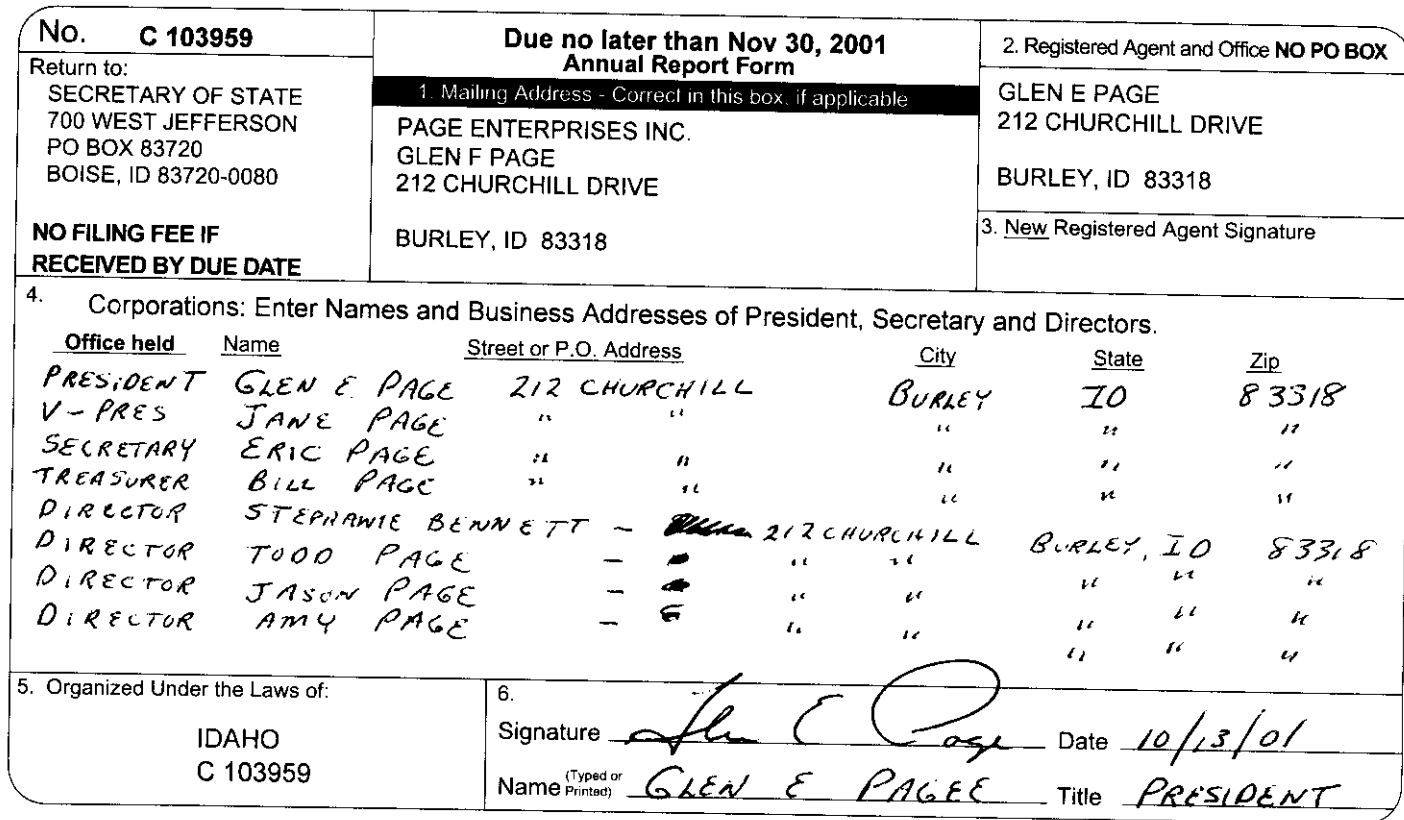 No. C 103959
Return to:
SECRETARY OF STATE
700 WEST JEFFERSON
PO BOX 83720
BOISE, ID 83720-0080
NO FILING FEE IF
RECEIVED BY DUE DATE
Due no later than Nov 30, 2001
Annual Report Form
1. Mailing Address - Correct in this box, if applicable
PAGE ENTERPRISES INC.
GLEN F PAGE
212 CHURCHILL DRIVE
BURLEY, ID 83318
2. Registered Agent and Office NO PO BOX
GLEN E PAGE
212 CHURCHILL DRIVE
BURLEY, ID 83318
3. New Registered Agent Signature
4. Corporations: Enter Names and Business Addresses of President, Secretary and Directors.
Office held Name Street or P.O. Address City State Zip
PRESIDENT GLEN E. PAGE 212 CHURCHILL BURLEY ID 83318
V-PRES JANE PAGE " " " " "
SECRETARY ERIC PAGE " " " " "
TREASURER BILL PAGE " " " " "
DIRECTOR STEPHANIE BENNETT - 212 CHURCHILL BURLEY, ID 83318
DIRECTOR TODD PAGE - " " " " "
DIRECTOR JASON PAGE - " " " " "
DIRECTOR AMY PAGE - " " " " "
5. Organized Under the Laws of:
IDAHO
C 103959
6.
Signature Glen E Page Date 10/13/01
Name (Typed or Printed) GLEN E PAGEE Title PRESIDENT